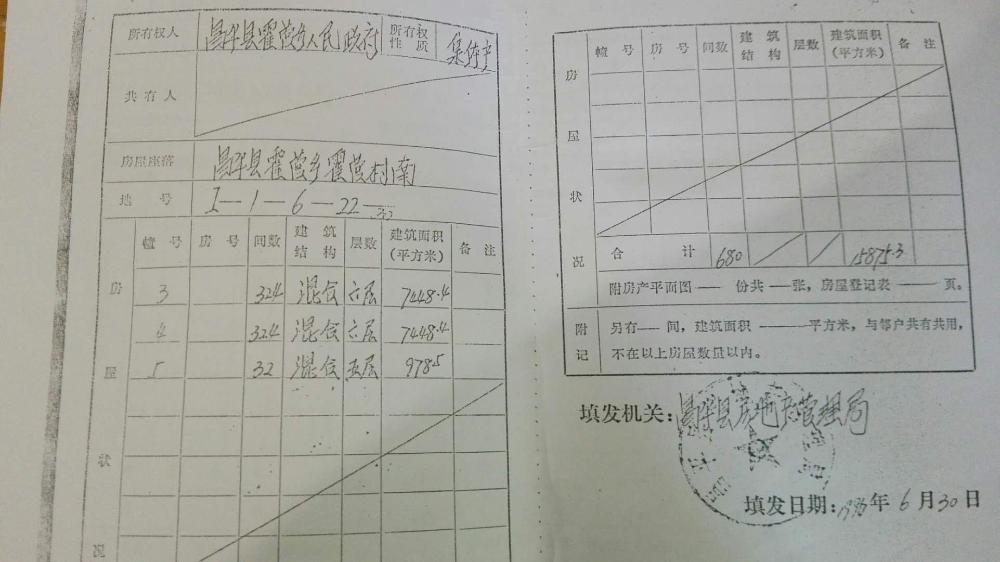 所有权人 昌平县霍营乡人民政府 所有权性质 集体产
共有人
房屋座落 昌平县霍营乡霍营村南
地号 I-1-6-22-
房屋状况
幢号 房号 间数 建筑结构 层数 建筑面积(平方米) 备注
3 324 混合 六层 7448.4
4 324 混合 六层 7448.4
5 32 混合 五层 978.5
房屋状况
幢号 房号 间数 建筑结构 层数 建筑面积(平方米) 备注
合计 680 15875.3
附房产平面图 — 份共 — 张,房屋登记表 — 页。
附记
另有 — 间,建筑面积 — 平方米,与邻户共有共用,
不在以上房屋数量以内。
填发机关:昌平县房地产管理局
填发日期: 年6月30日